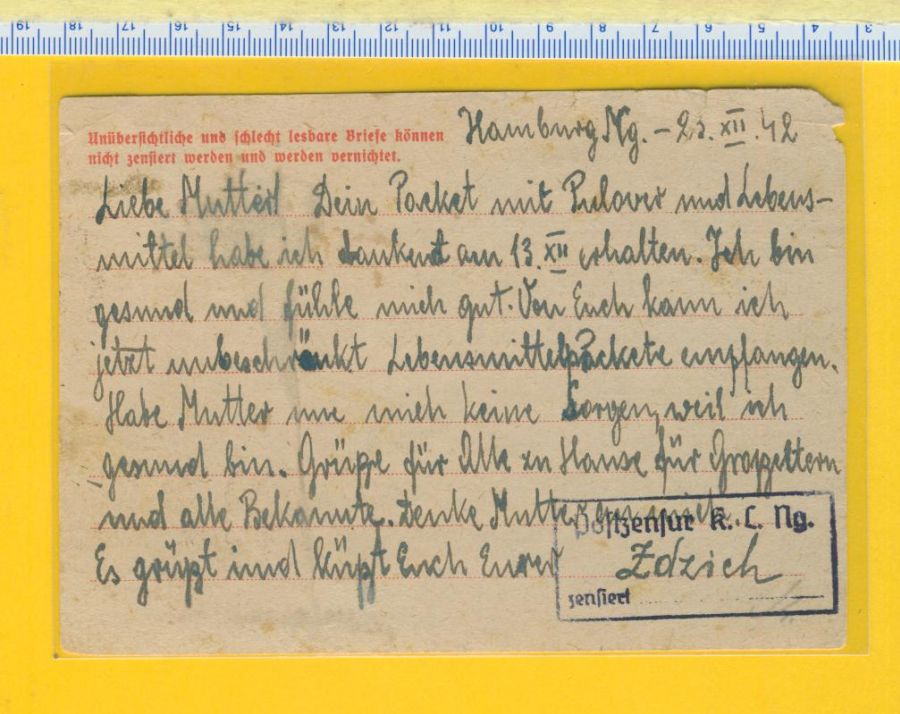 19 18 17 16 15 14 13 12 11 10 9 8 7 6 5 4 3
Unübersichtliche und schlecht lesbare Briefe können
nicht zensiert werden und werden vernichtet.
Hamburg Ng. - 23. XII. 42
Liebe Mutter! Dein Packet mit Pulover und Lebens-
mittel habe ich dankend am 13. XII erhalten. Ich bin
gesund und fühle mich gut. Von Euch kann ich
jetzt unbeschränkt Lebensmittelpackete empfangen.
Habe Mutter um mich keine Sorgen, weil ich
gesund bin. Grüße für Alle zu Hause für Großeltern
und alle Bekannte. Denke Mutter an mich.
Es grüßt und küßt Euch Eurer
Zdzich
Postzensur K. L. Ng.
zensiert